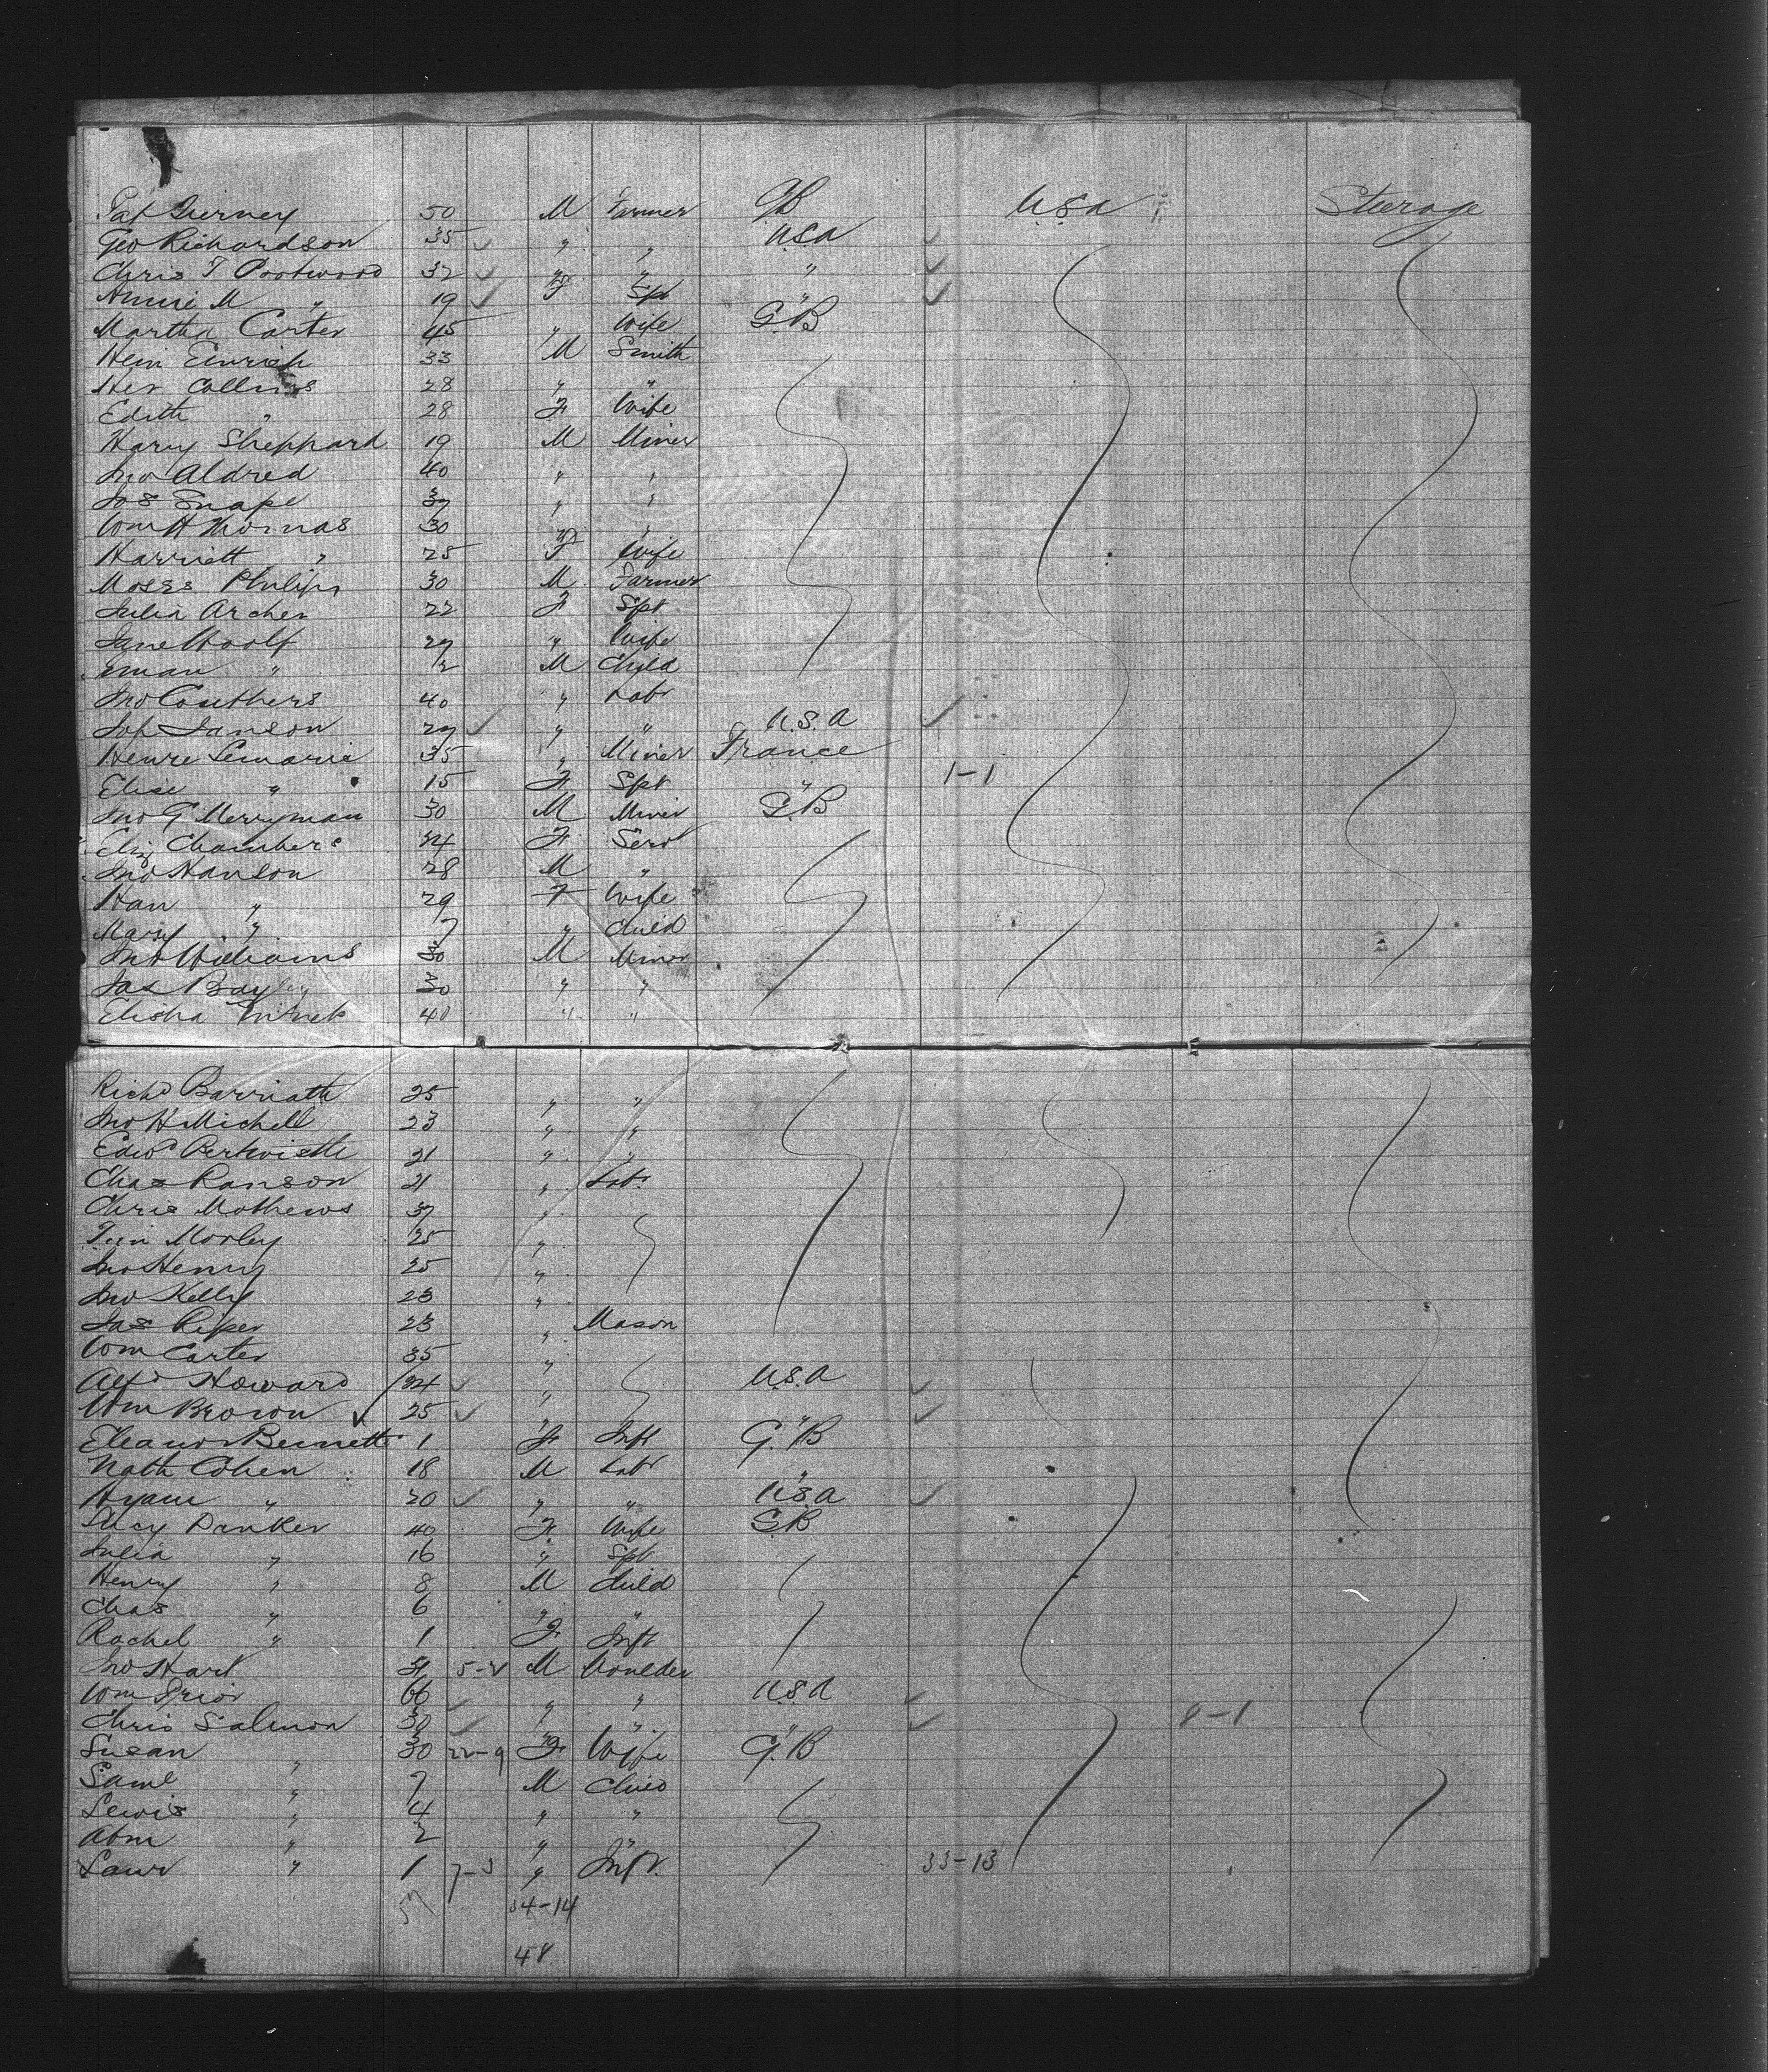 Pat Tierney 50 M Farmer GB U.S.A Steerage
Geo Richardson 35 " " U.S.A
Chris T Pootwood 32 " " "
Annie M " 19 F Spt "
Martha Carter 45 " Wife G.B
Hein Emrich 33 M Smith
Her Collins 28 " "
Edith " 28 F Wife
Harry Sheppard 19 M Miner
Jno Aldred 40 " "
Jos Snape 37 " "
Wm H Thomas 30 " "
Harriett " 25 F Wife
Moses Philips 30 M Farmer
Julia Archer 22 F Spt
Jane Woolf 27 " Wife
" M Child
Jno Couthers 40 " Labr
Joh Janson 27 " " U.S.A
Henre Lemarie 35 " Miner France
Elise " 15 F Spt " 1-1
Jno G Merryman 30 M Miner G.B
Eliz Chambers 24 F Serv
Jno Hanson 28 M "
Han " 29 F Wife
Mary " 7 " Child
Jno Williams 30 M Miner
Jas Bayley 30 " "
Elisha 40 " "
Richd Barriath 25 " "
Jno H Michell 23 " "
Edwd 21 " "
Chas Ranson 21 " Labr
Chris Mathews 37 "
Tim Morley 25 "
Jno Henry 25 "
Jno Kelly 23 "
Jas Piper 23 " Mason
Wm Carter 35 "
Alfd Howard 34 " U.S.A
Wm Brown 25 " "
Eleanor Bennett 1 F Inft G.B
Nath Cohen 18 M Labr "
Hyam " 20 " " U.S.A
Lucy Danker 40 F Wife G.B
Julia " 16 " Spt
Henry " 8 M Child
Chas " 6 " "
Rachel " 1 F Inft
Jno Hart 31 M Moulder
Wm Prior 66 " " U.S.A
Chris Salmon 30 " " "
Susan " 30 22-9 F Wife G.B
Saml " 7 M Child
Lewis " 4 " "
Abm " 2 " "
Laur " 1 7-5 " Inft 33-13
57 34-14
48